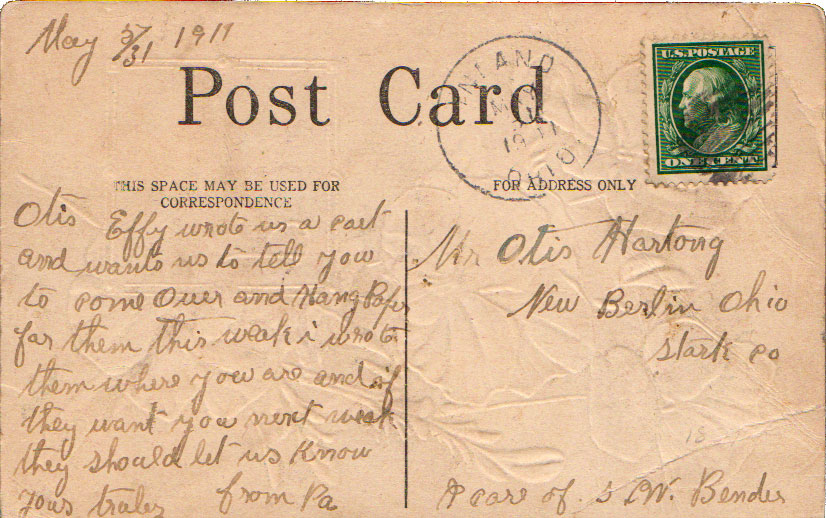 May 5/31 1911
INLAND
MAY
1911
OHIO
U.S. POSTAGE
ONE CENT
Post Card
THIS SPACE MAY BE USED FOR
CORRESPONDENCE
FOR ADDRESS ONLY
Otis Effy wrote us a cart
and wants us to tell you
to come Over and Hang Paper
for them this week i wrote
them where you are and if
they want you next week
they should let us Know
yours from Pa
Mr Otis Hartong
New Berlin Ohio
Stark co
18
care of. S. W. Bender